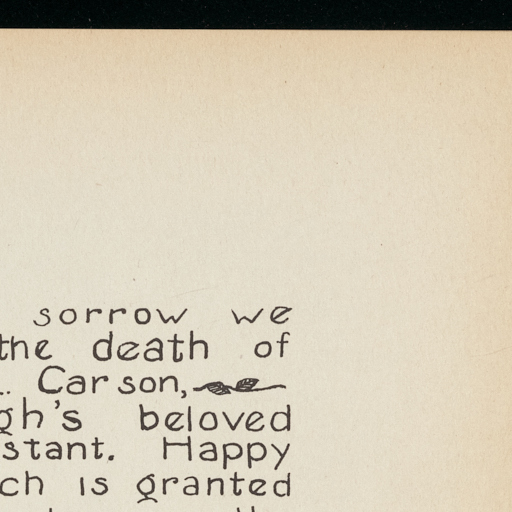 sorrow we
the death of
. Carson,
gh's beloved
stant. Happy
ch is granted